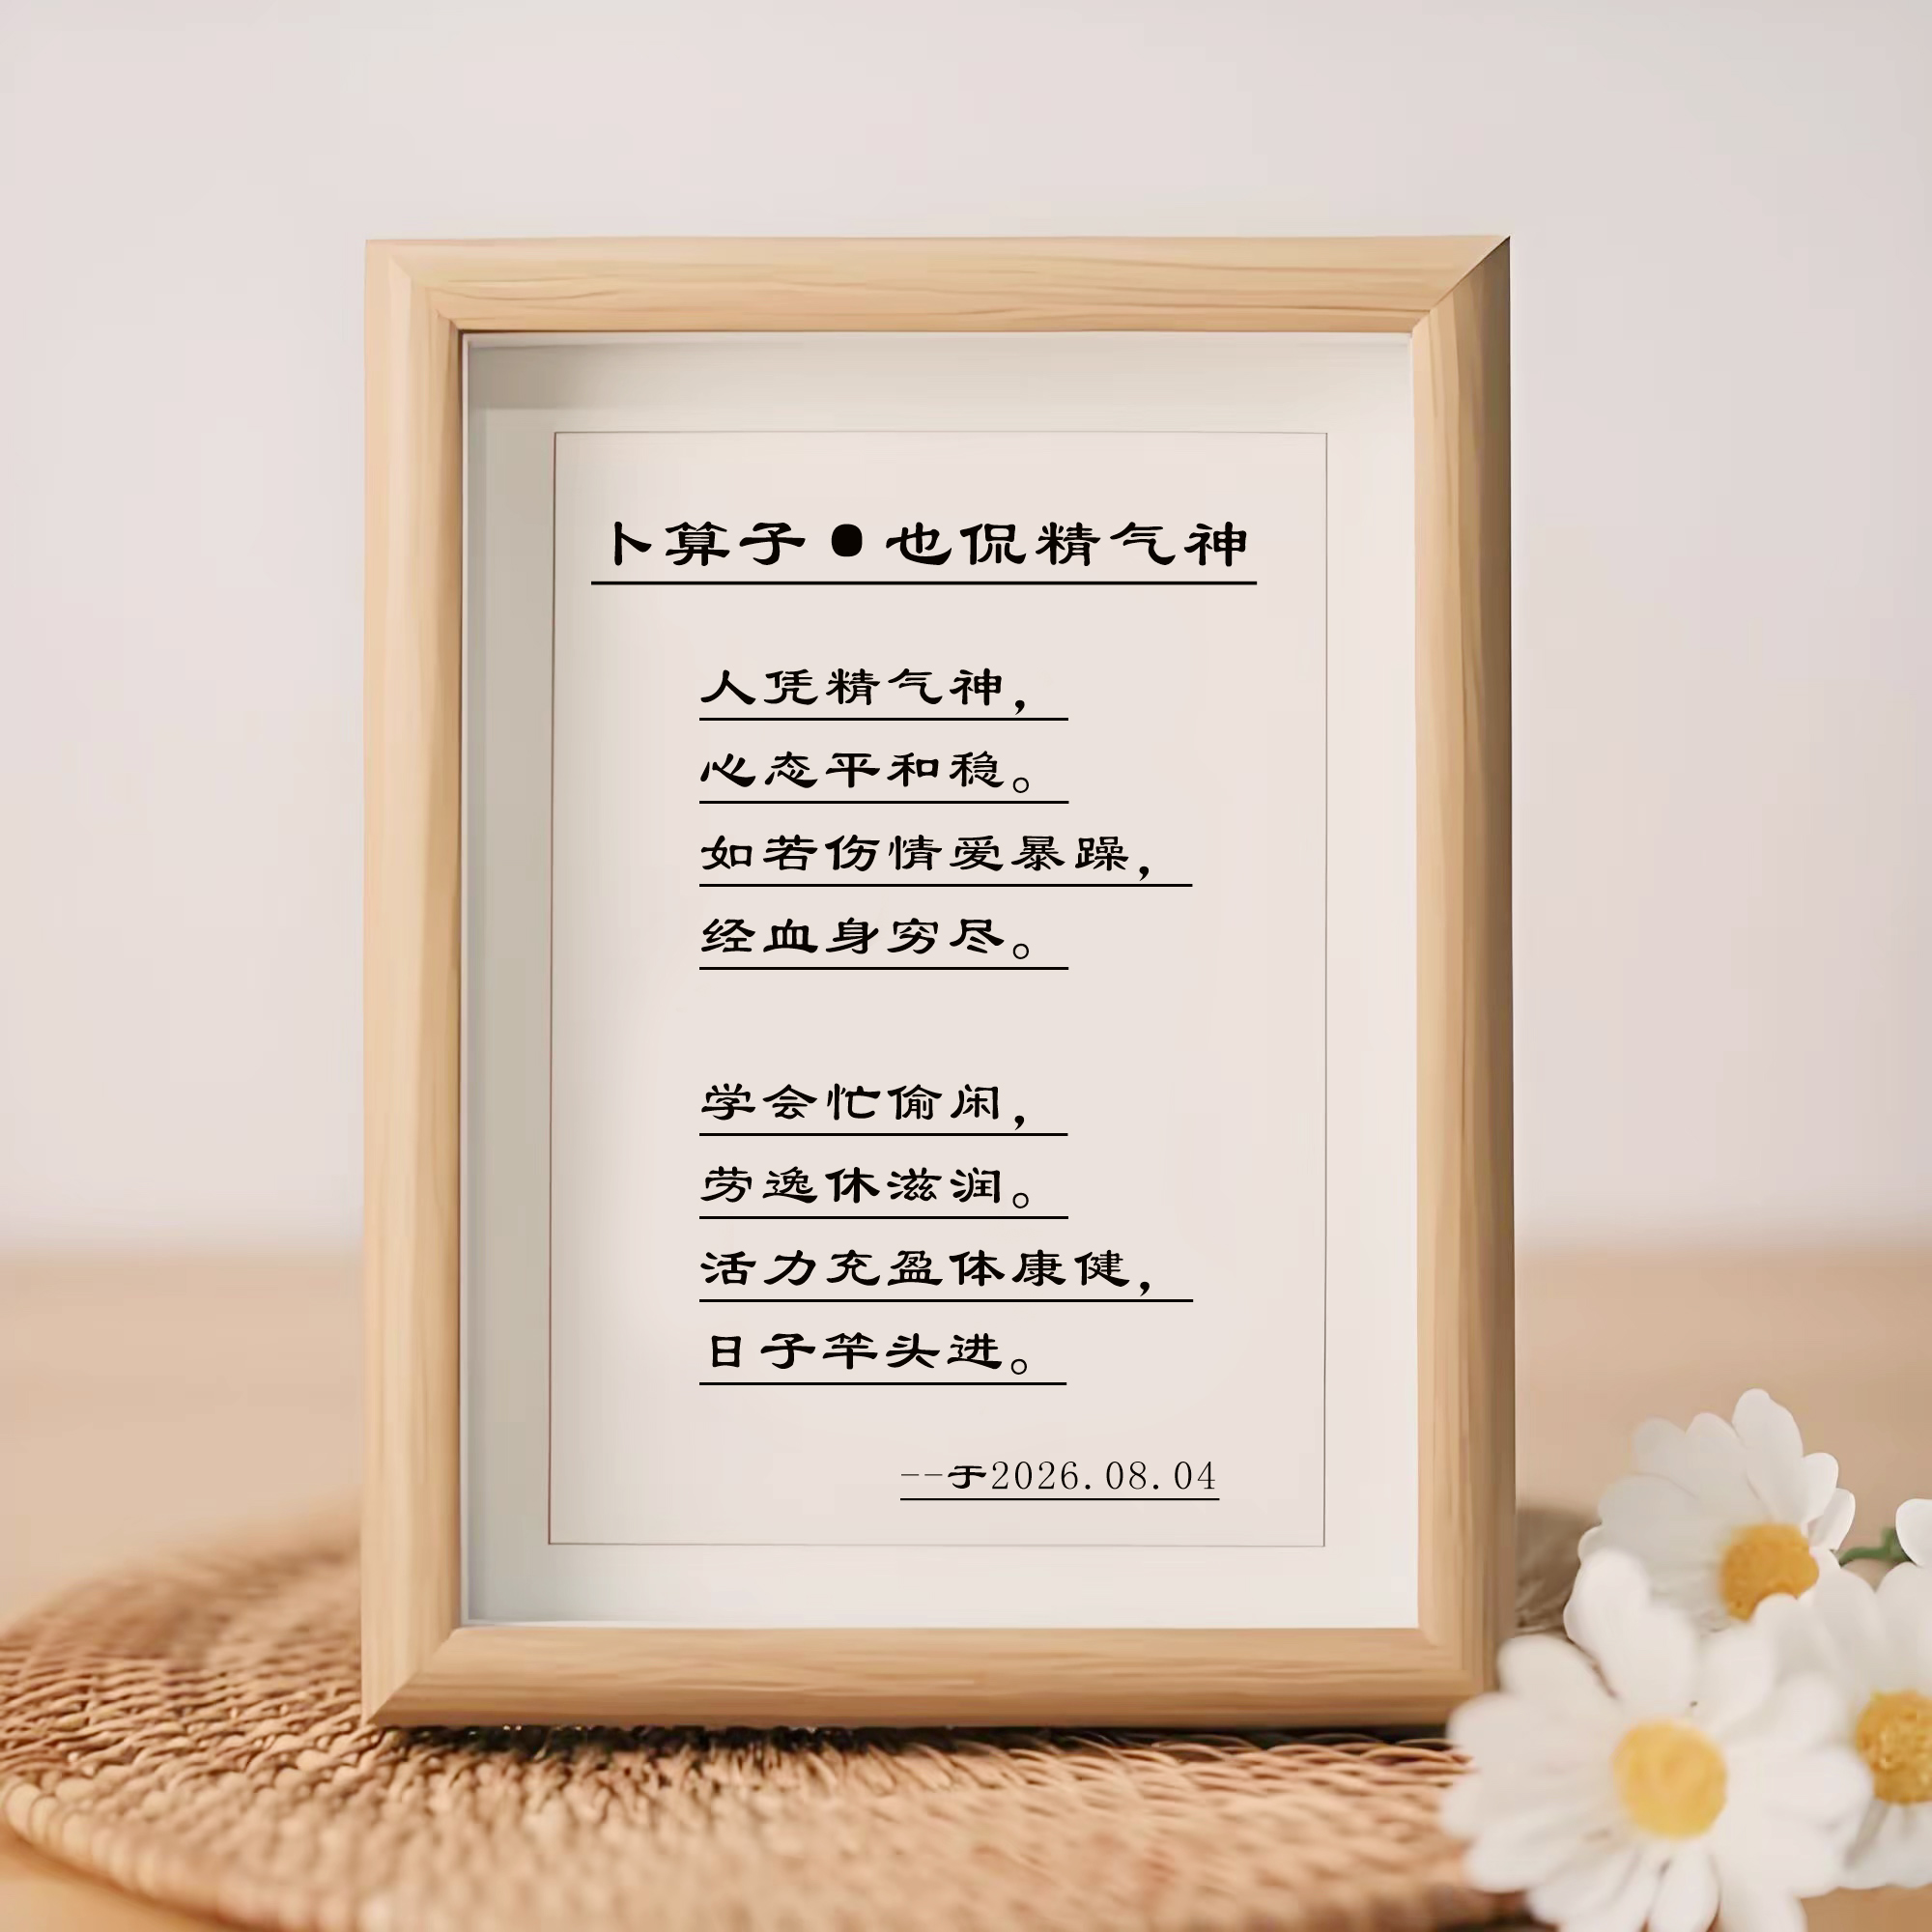 卜算子●也侃精气神
人凭精气神，
心态平和稳。
如若伤情爱暴躁，
经血身穷尽。
学会忙偷闲，
劳逸休滋润。
活力充盈体康健，
日子竿头进。
--于2026.08.04